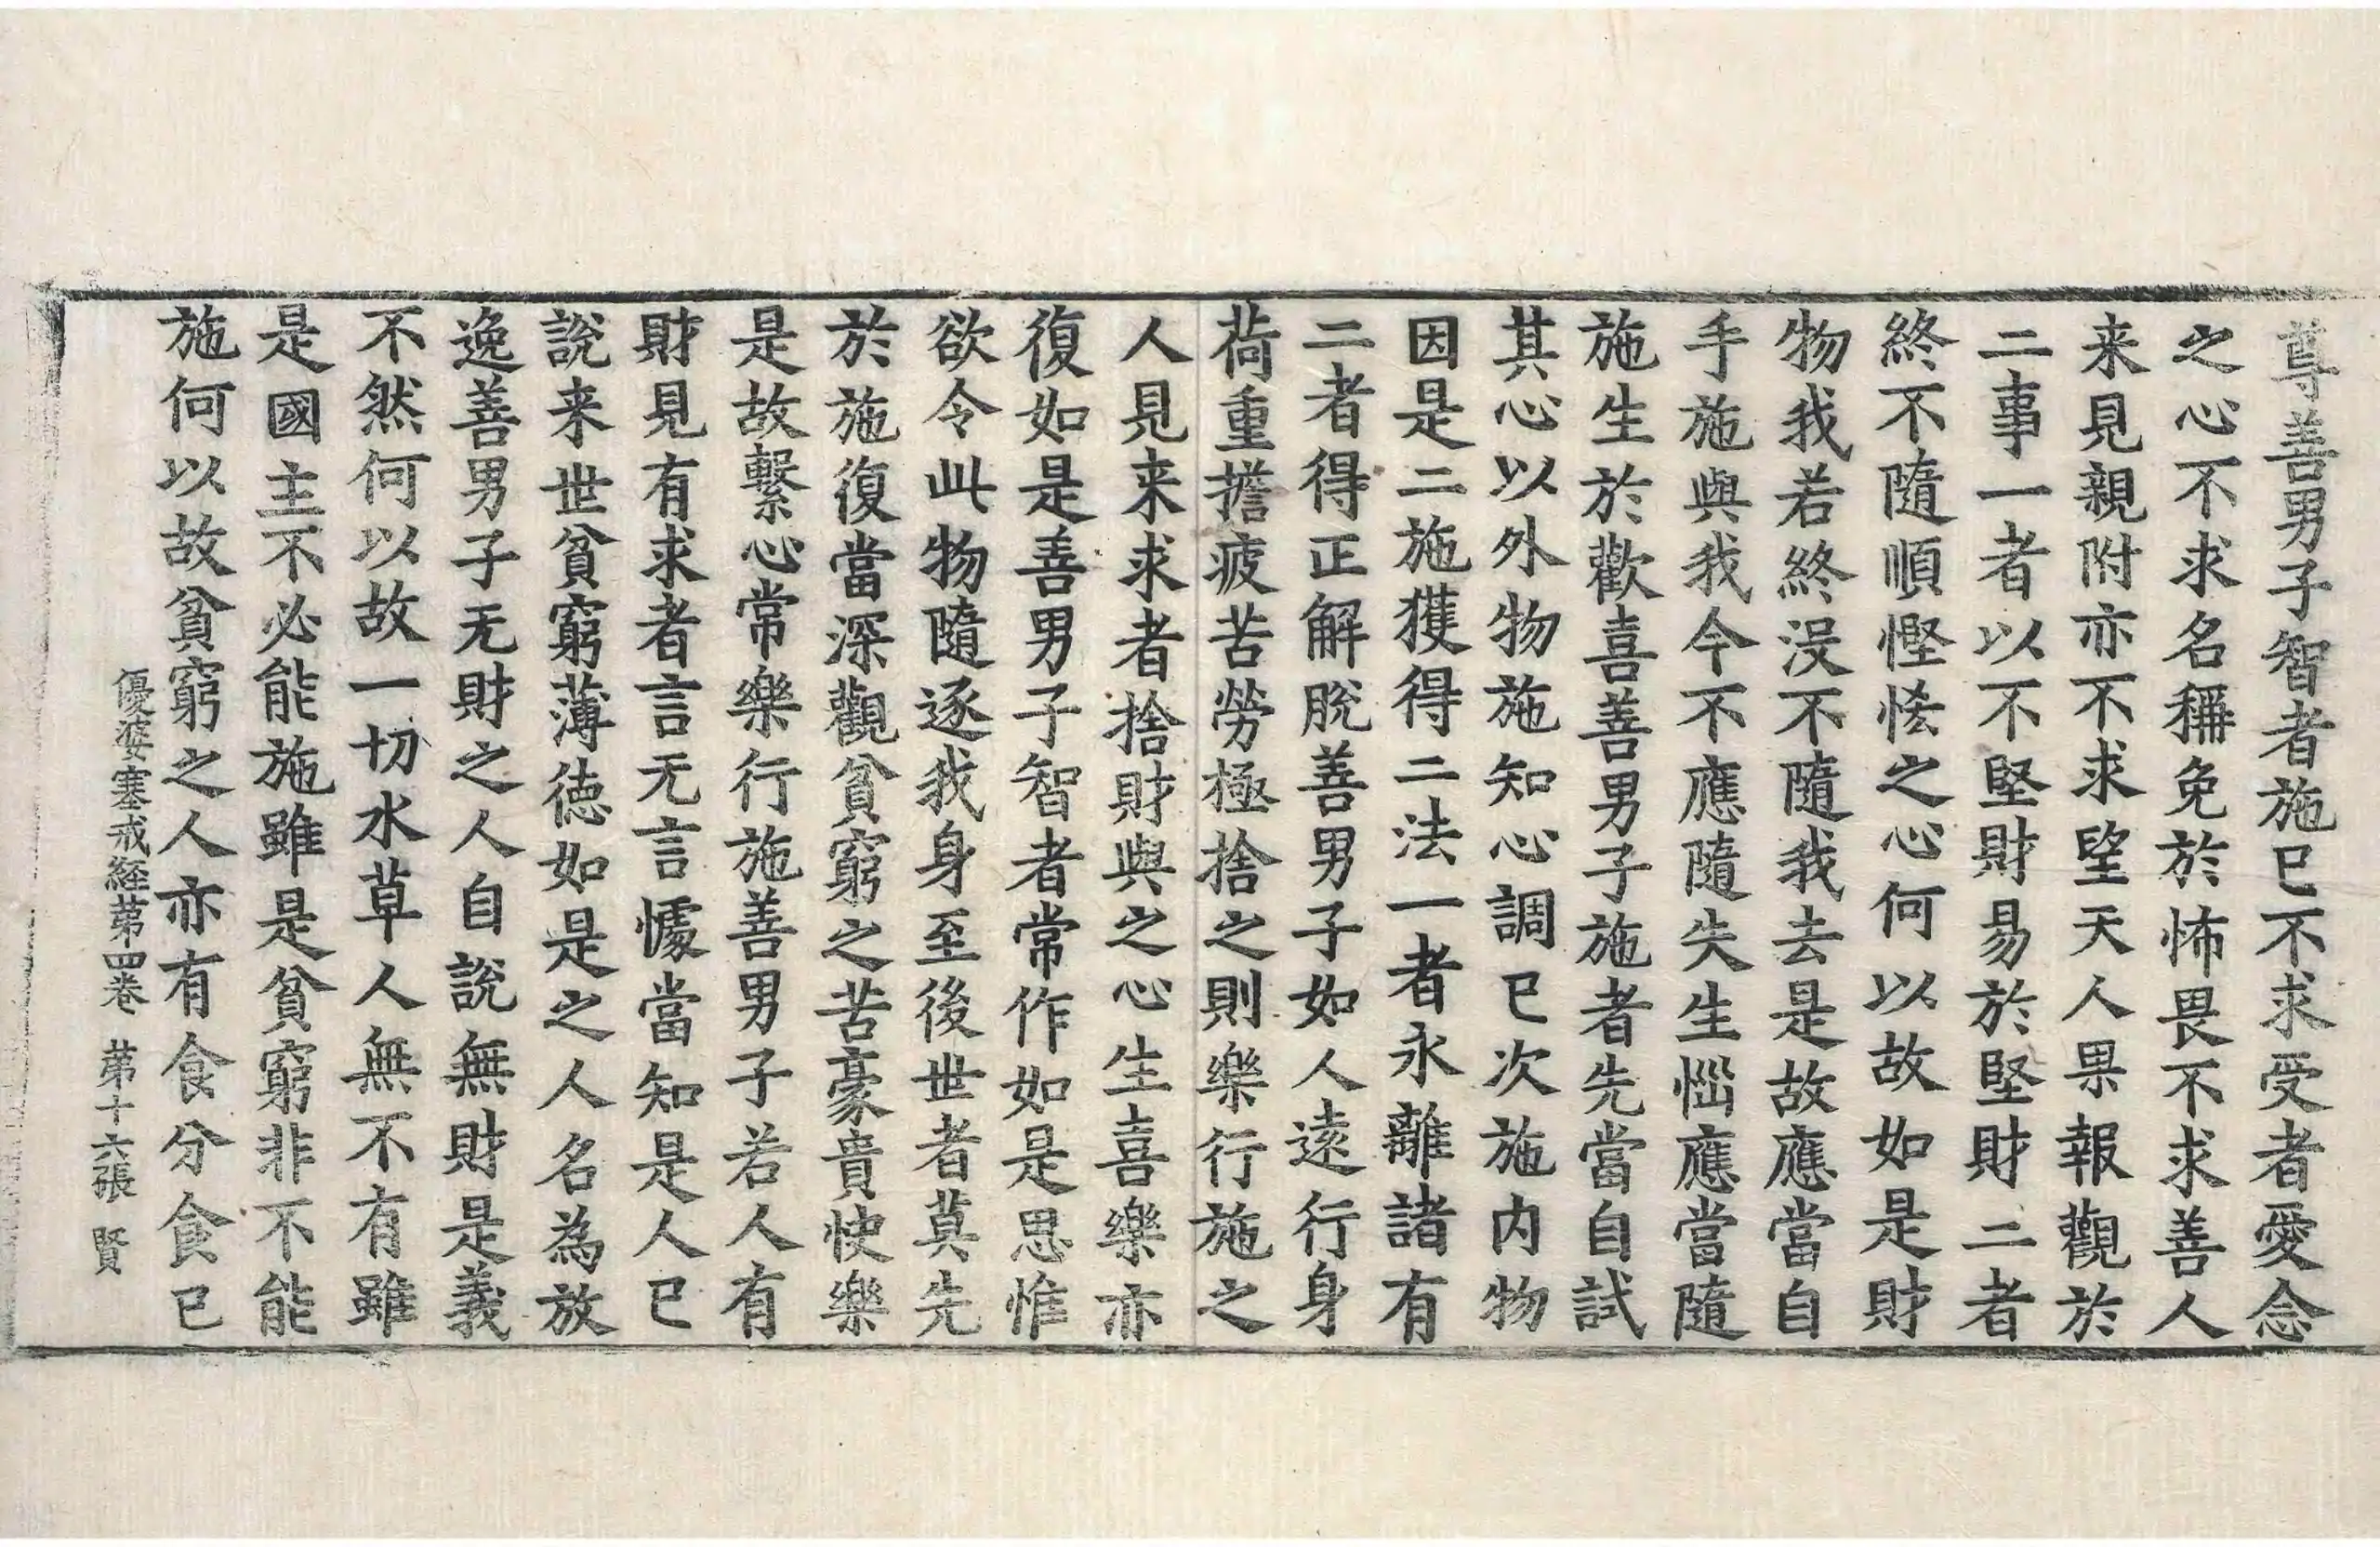 尊善男子智者施已不求受者愛念
之心不求名稱免於怖畏不求善人
来見親附亦不求望天人果報觀於
二事一者以不堅財易於堅財二者
終不隨順慳悋之心何以故如是財
物我若終没不隨我去是故應當自
手施與我今不應隨失生惱應當隨
施生於歡喜善男子施者先當自試
其心以外物施知心調已次施内物
因是二施獲得二法一者永離諸有
二者得正解脫善男子如人遠行身
荷重擔疲苦勞極捨之則樂行施之
人見来求者捨財與之心生喜樂亦
復如是善男子智者常作如是思惟
欲令此物隨逐我身至後世者莫先
於施復當深觀貧窮之苦豪貴快樂
是故繫心常樂行施善男子若人有
財見有求者言无言懅當知是人已
說来世貧窮薄德如是之人名為放
逸善男子无財之人自說無財是義
不然何以故一切水草人無不有雖
是國主不必能施雖是貧窮非不能
施何以故貧窮之人亦有食分食已
優婆塞戒経苐四卷 苐十六張 賢